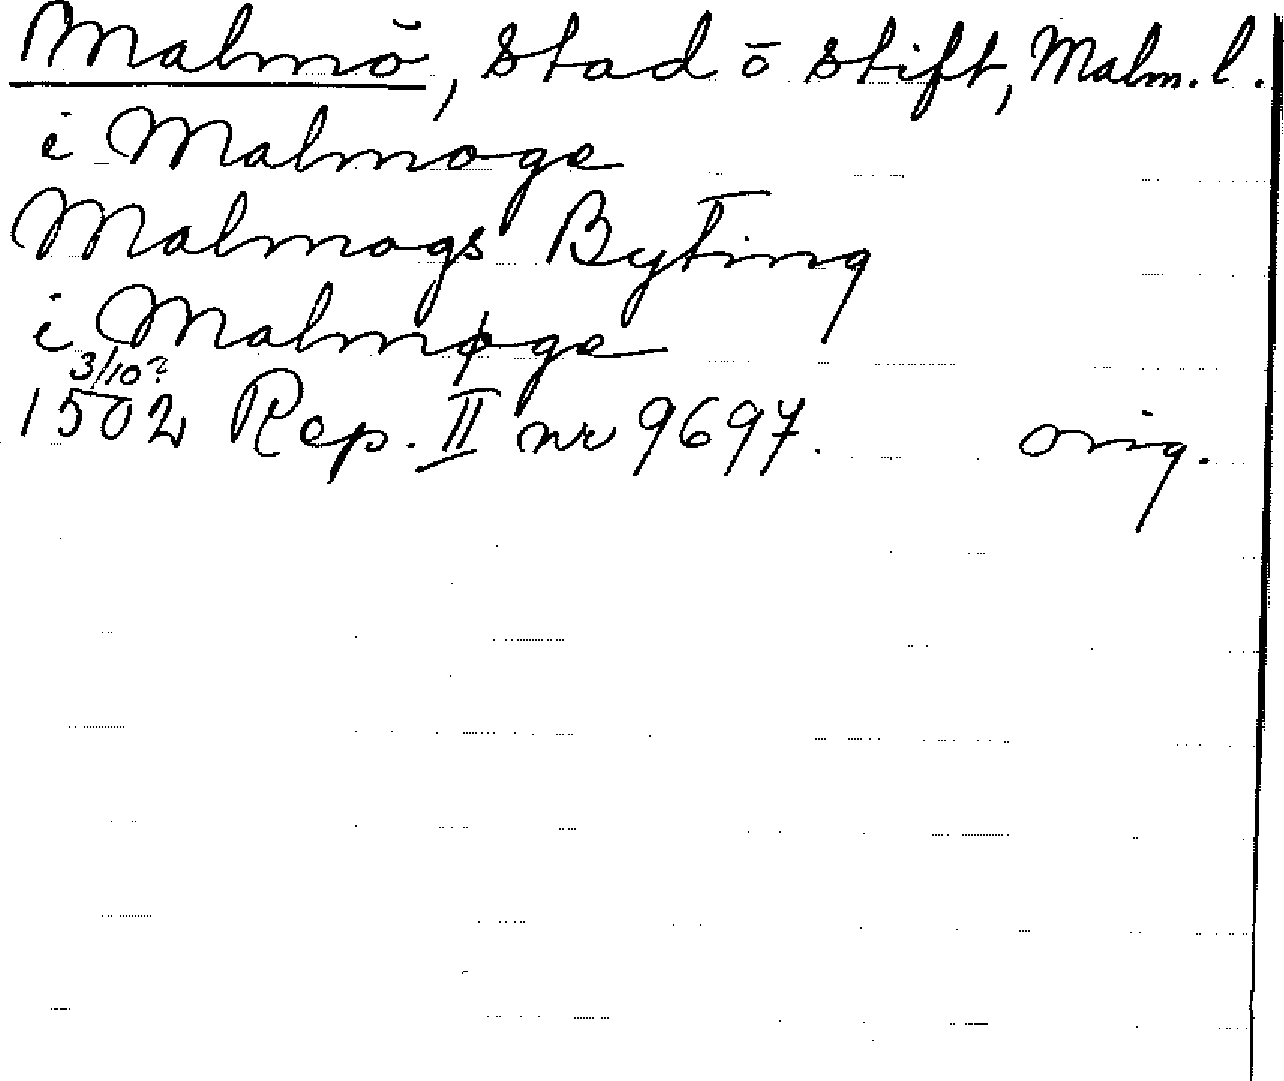 Malmö, stad ō stift, Malm. l.
i Malmoge
Malmogs Byting
i Malmøge
3/10?
1502 Rep. II nr 9697. orig.